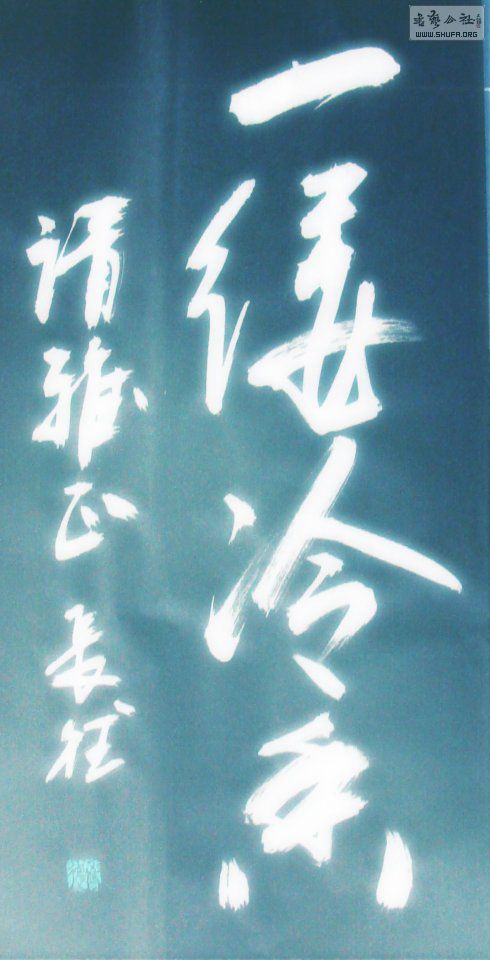 書藝公社
WWW.SHUFA.ORG
一缕冷香
请雅正
長征